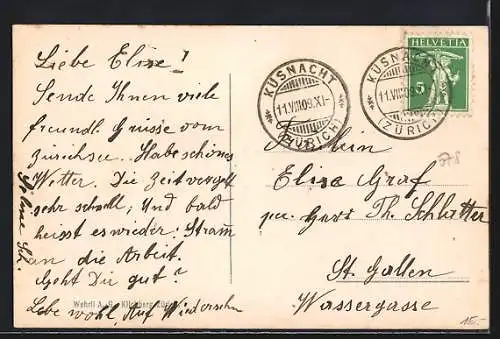 Liebe Elise!
Sende Ihnen viele
freundl. Grüsse vom
Zürichsee. Habe schönes
Wetter. Die Zeit vergeht
sehr schnell, Und bald
heisst es wieder: Stram
an die Arbeit.
Geht Di gut?
Lebe wohl, Auf Wiedersehn
KÜSNACHT
11.VIII.09.XI-
(ZÜRICH)
KÜSNACHT
11.VIII.09.XI-
(ZÜRICH)
HELVETIA
5
Fräulein
Elise Graf
Th. Schlatter
St. Gallen
Wassergasse
Wehrli A.-G., Kilchberg